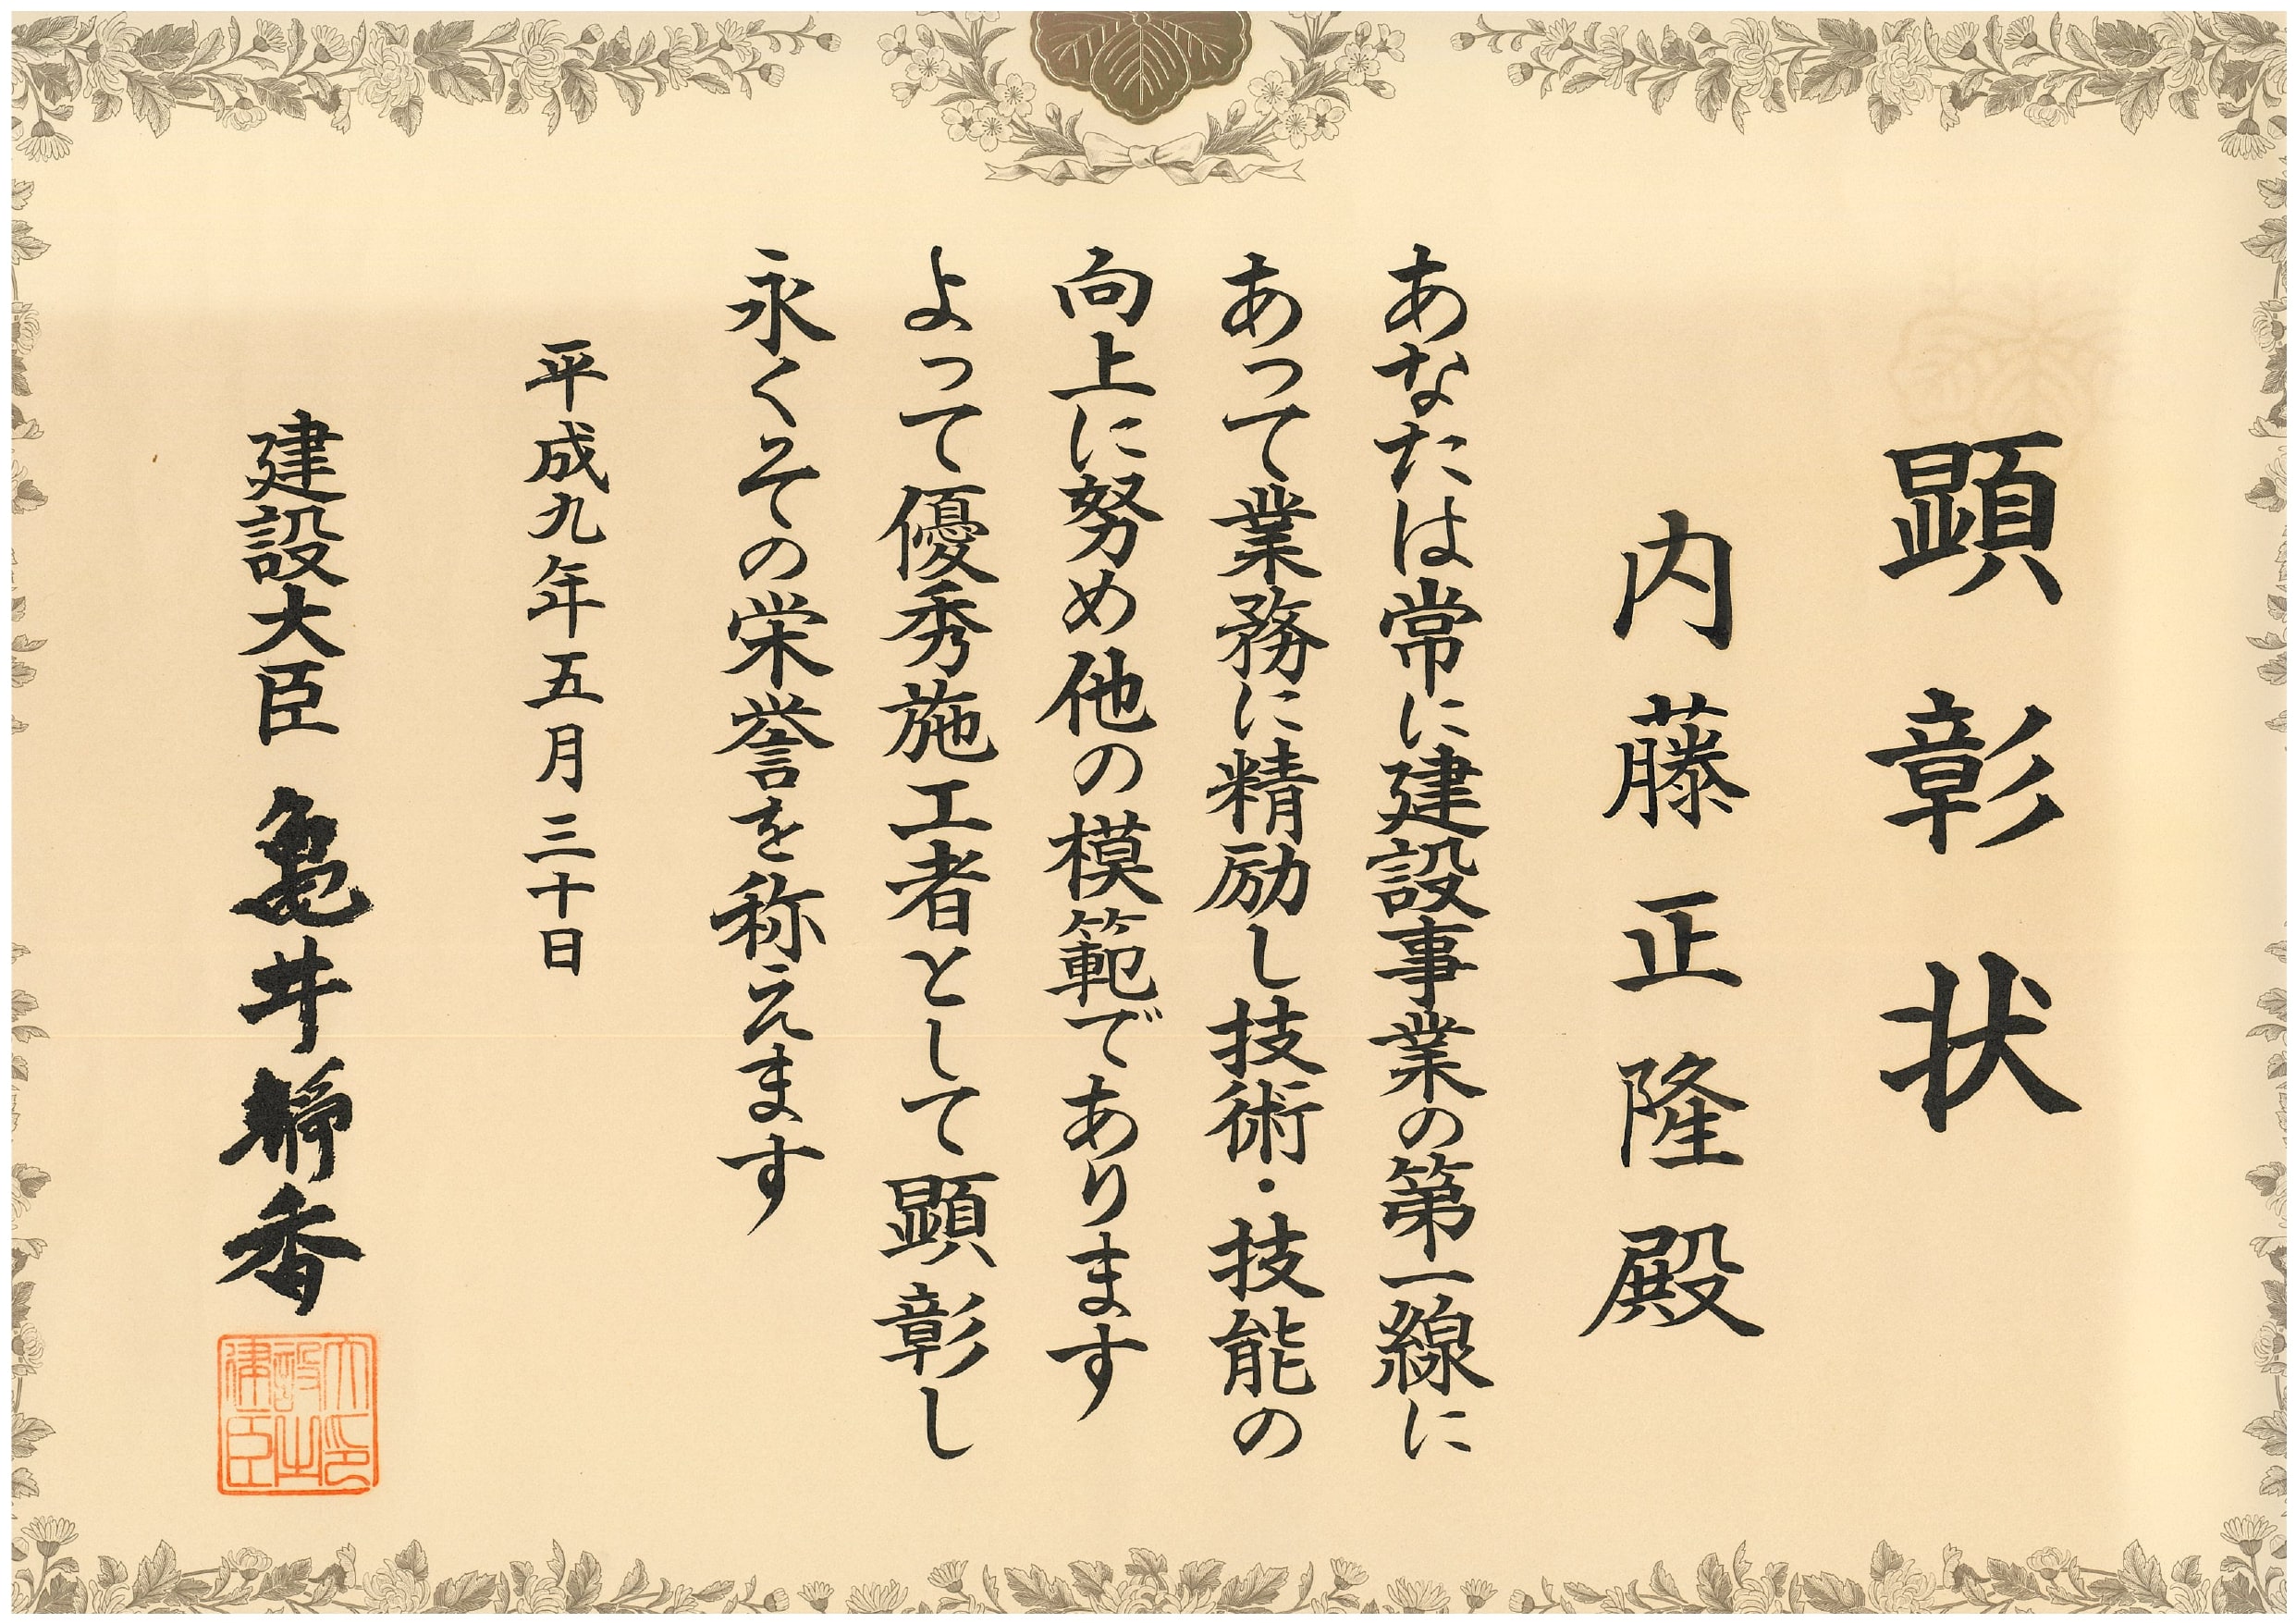 顕彰状
内藤正隆殿
あなたは常に建設事業の第一線に
あって業務に精励し技術・技能の
向上に努め他の模範であります
よって優秀施工者として顕彰し
永くその栄誉を称えます
平成九年五月三十日
建設大臣 亀井静香
建設大臣之印